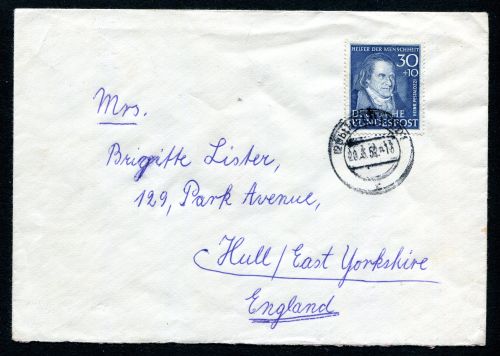 HELFER DER MENSCHHEIT
30
+10
DEUTSCHE
BUNDESPOST
Mrs.
Brigitte Lister,
129, Park Avenue,
Hull/East Yorkshire
England